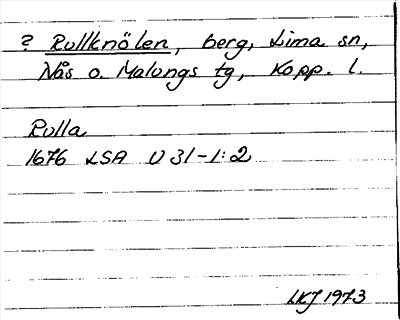 ? Rullknölen, berg, Lima sn,
Nås o. Malungs tg, Kopp. l.
Rulla
1676 LSA U 31-1:2
LKJ 1973